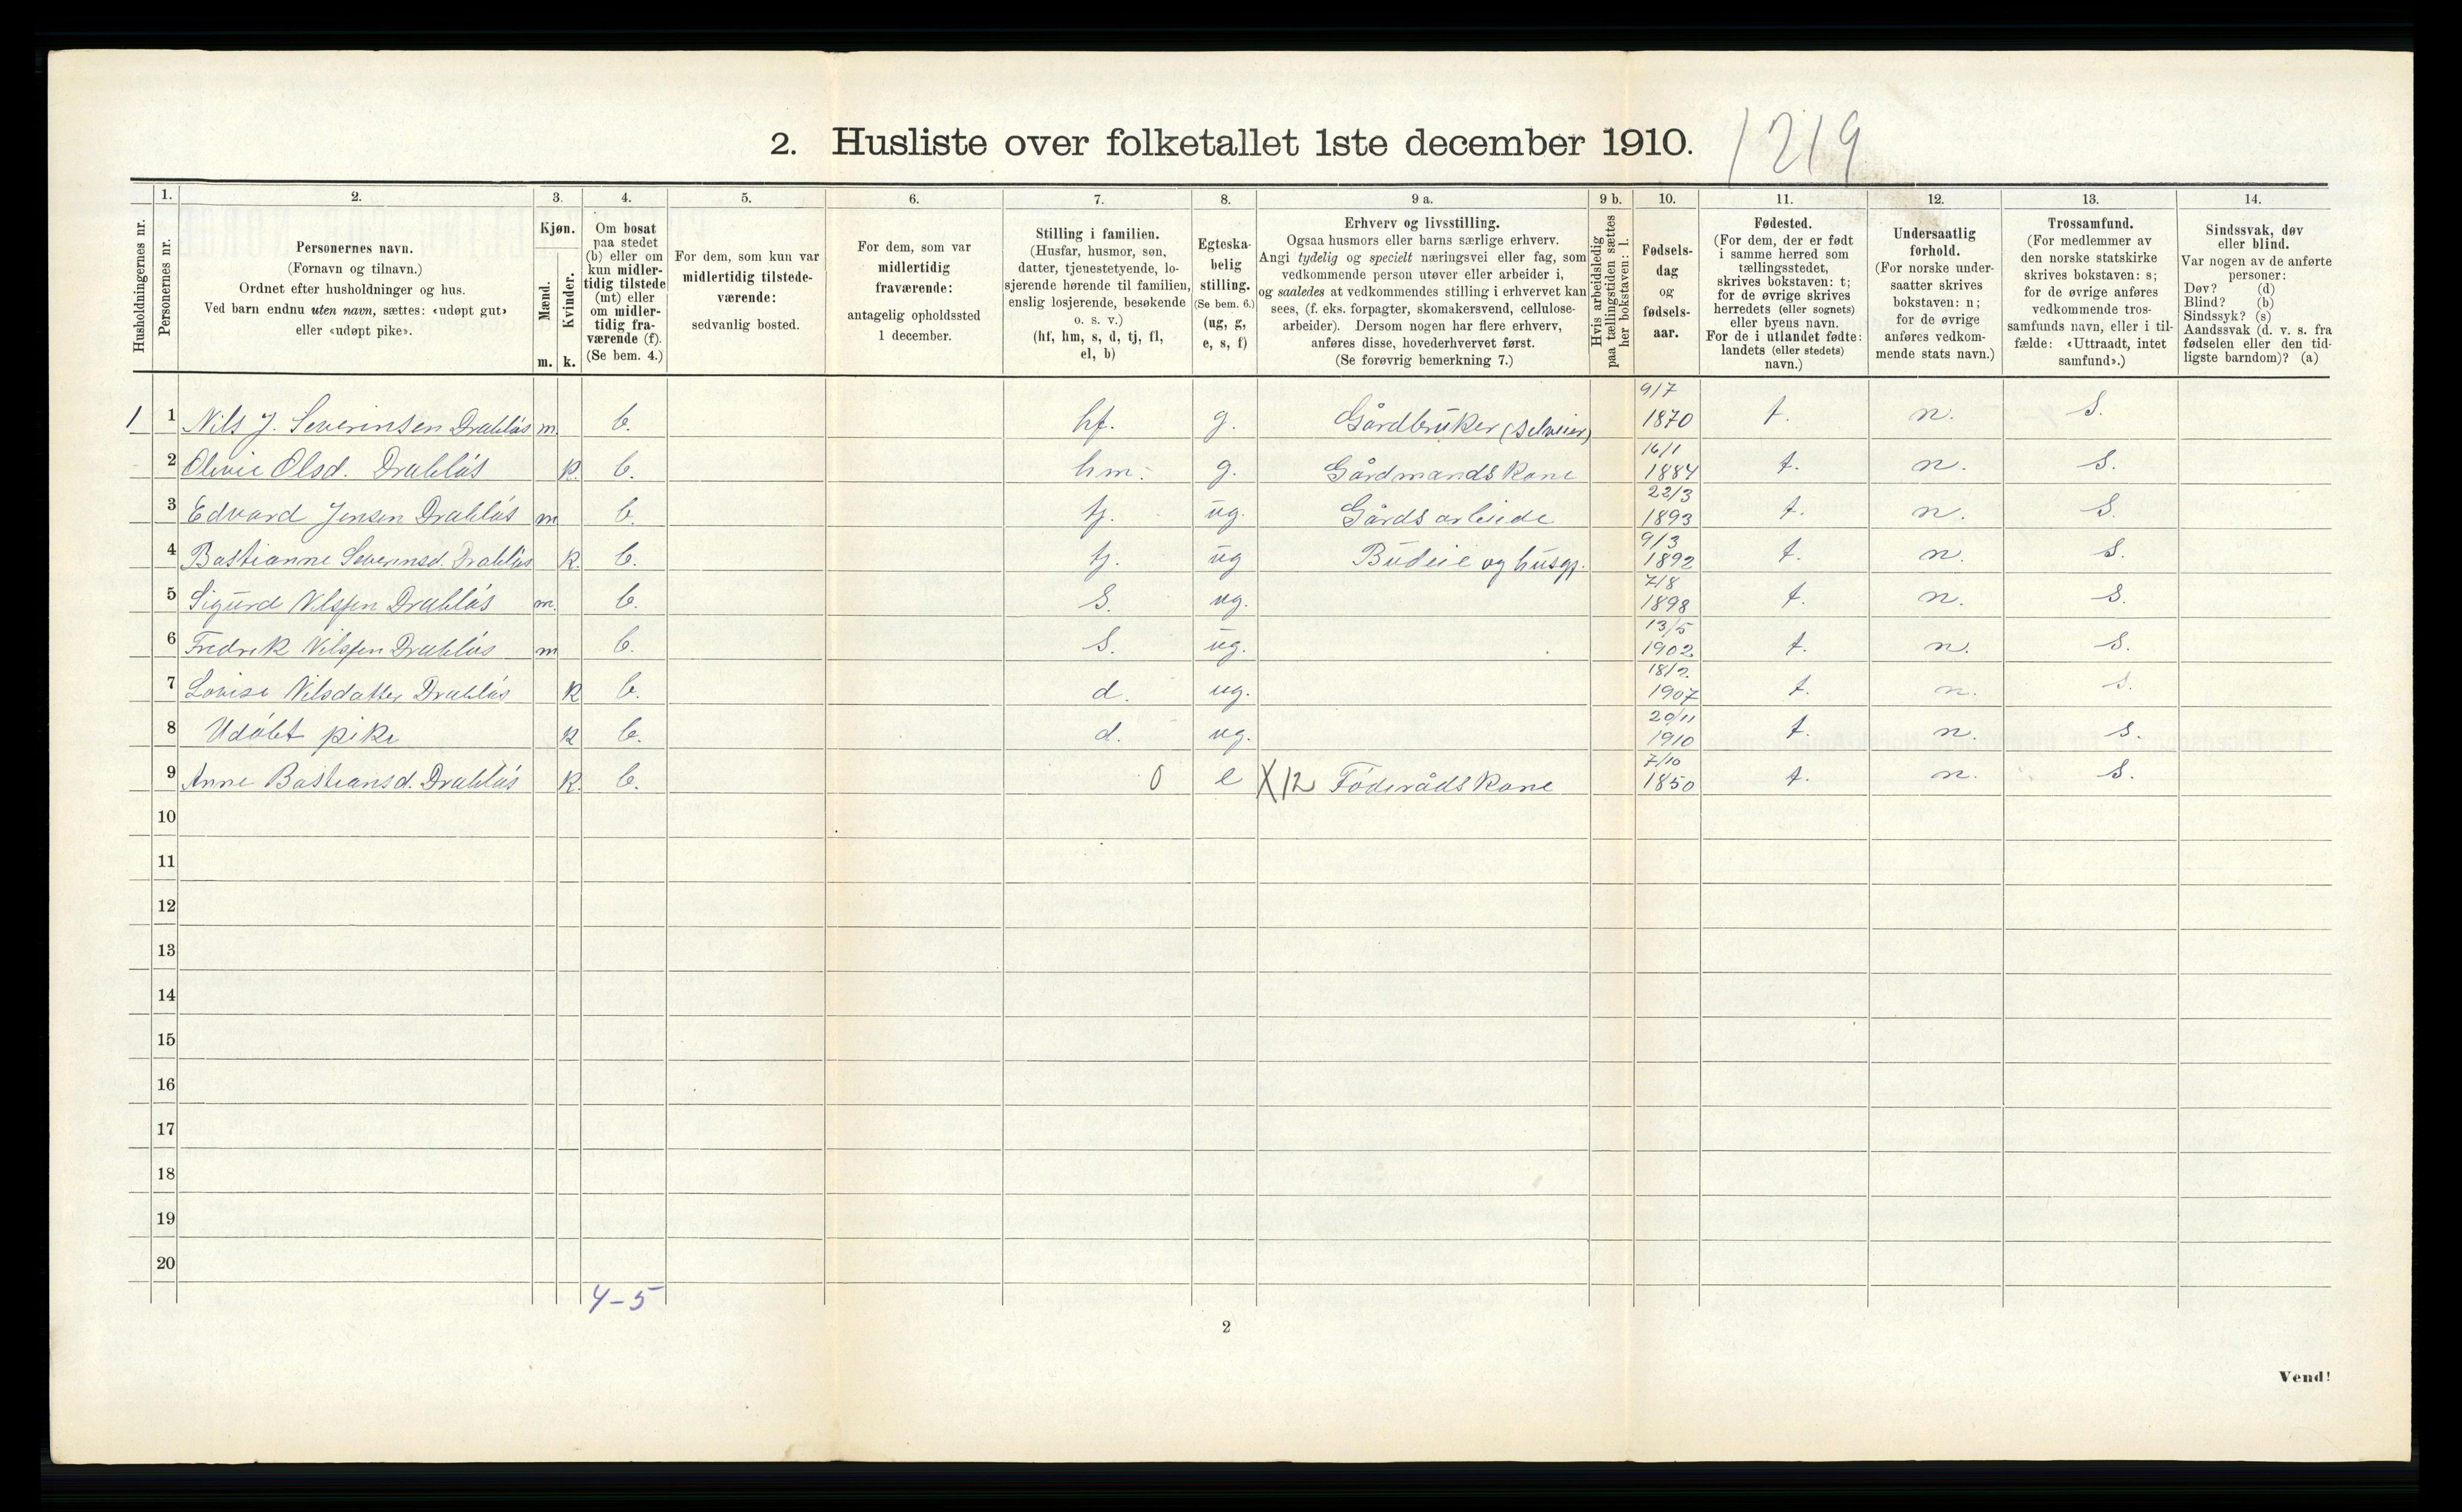 2. Husliste over folketallet 1ste december 1910. 1219
1. 2. 3. 4. 5. 6. 7. 8. 9 a. 9 b. 10. 11. 12. 13. 14.
Husholdningernes nr.
Personernes nr.
Personernes navn.
(Fornavn og tilnavn.)
Ordnet efter husholdninger og hus.
Ved barn endnu uten navn, sættes: «udøpt gut»
eller «udøpt pike».
Kjøn.
Mænd.
Kvinder.
m. k.
Om bosat
paa stedet
(b) eller om
kun midler-
tidig tilstede
(mt) eller
om midler-
tidig fra-
værende (f).
(Se bem. 4.)
For dem, som kun var
midlertidig tilstede-
værende:
sedvanlig bosted.
For dem, som var
midlertidig
fraværende:
antagelig opholdssted
1 december.
Stilling i familien.
(Husfar, husmor, søn,
datter, tjenestetyende, lo-
sjerende hørende til familien,
enslig losjerende, besøkende
o. s. v.)
(hf, hm, s, d, tj, fl,
el, b)
Egteska-
belig
stilling.
(Se bem. 6.)
(ug, g,
e, s, f)
Erhverv og livsstilling.
Ogsaa husmors eller barns særlige erhverv.
Angi tydelig og specielt næringsvei eller fag, som
vedkommende person utøver eller arbeider i,
og saaledes at vedkommendes stilling i erhvervet kan
sees, (f. eks. forpagter, skomakersvend, cellulose-
arbeider). Dersom nogen har flere erhverv,
anføres disse, hovederhvervet først.
(Se forøvrig bemerkning 7.)
Hvis arbeidsledig
paa tællingstiden sættes
her bokstaven: l.
Fødsels-
dag
og
fødsels-
aar.
Fødested.
(For dem, der er født
i samme herred som
tællingsstedet,
skrives bokstaven: t;
for de øvrige skrives
herredets (eller sognets)
eller byens navn.
For de i utlandet fødte:
landets (eller stedets)
navn.)
Undersaatlig
forhold.
(For norske under-
saatter skrives
bokstaven: n;
for de øvrige
anføres vedkom-
mende stats navn.)
Trossamfund.
(For medlemmer av
den norske statskirke
skrives bokstaven: s;
for de øvrige anføres
vedkommende tros-
samfunds navn, eller i til-
fælde: «Uttraadt, intet
samfund».)
Sindssvak, døv
eller blind.
Var nogen av de anførte
personer:
Døv? (d)
Blind? (b)
Sindssyk? (s)
Aandssvak (d. v. s. fra
fødselen eller den tid-
ligste barndom)? (a)
1 1 Nils J. Severinsen Drabløs m. b. hf. g. Gårdbruker (selveier) 9/7 1870 t. n. s.
2 Olivie Olsd. Drabløs k. b. hm. g. Gårdmandskone 16/1 1884 t. n. s.
3 Edvard Jensen Drabløs m b. tj. ug. Gårdsarbeide 22/3 1893 t. n. s.
4 Bastianne Severinsd. Drabløs k. b. tj. ug Budeie og husgj. 9/3 1892 t. n. s.
5 Sigurd Nilssen Drabløs m. b. s. ug. 7/8 1898 t. n. s.
6 Fredrik Nilssen Drabløs m b. s. ug. 13/5 1902 t. n. s.
7 Lovise Nilsdatter Drabløs k b. d. ug. 18/2 1907 t. n. s.
8 Udøbt pike k b. d. ug. 20/11 1910 t. n. s.
9 Anne Bastiansd. Drabløs k. b. 0 e X 12 Føderådskone 7/10 1850 t. n. s.
10
11
12
13
14
15
16
17
18
19
20
4-5
2
Vend!